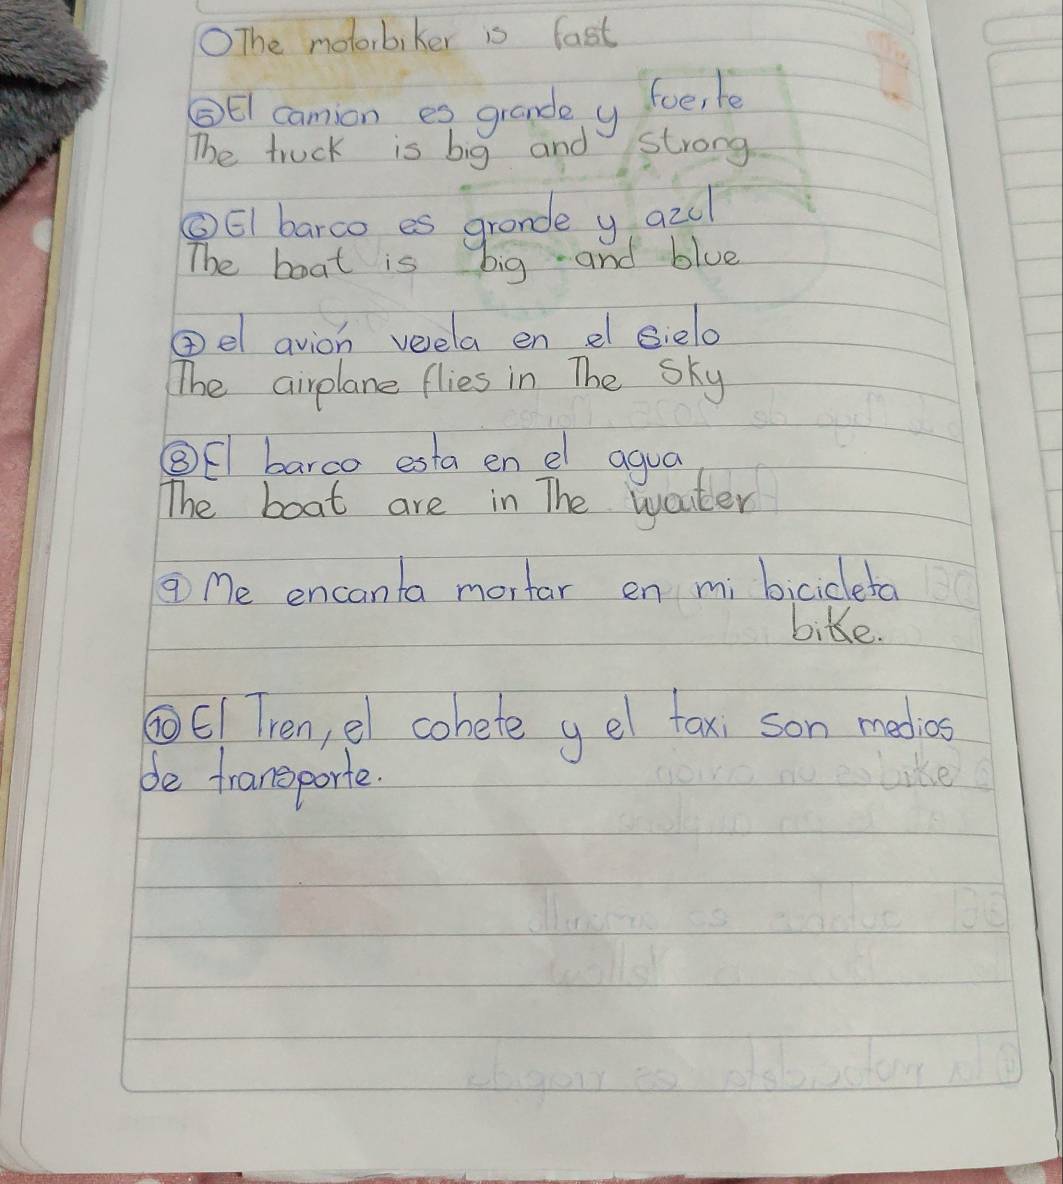 The motorbiker is fast
⑤ El camion es grande y fuerte
The truck is big and strong
⑥ El barco es grande y azul
The boat is big and blue
⑦ el avión veela en el sielo
The airplane flies in The Sky
⑧ El barco esta en el agua
The boat are in The water
⑨ Me encanta mortar en mi bicicleta
bike.
⑩ El Tren, el cohete y el taxi son medios
de transporte.